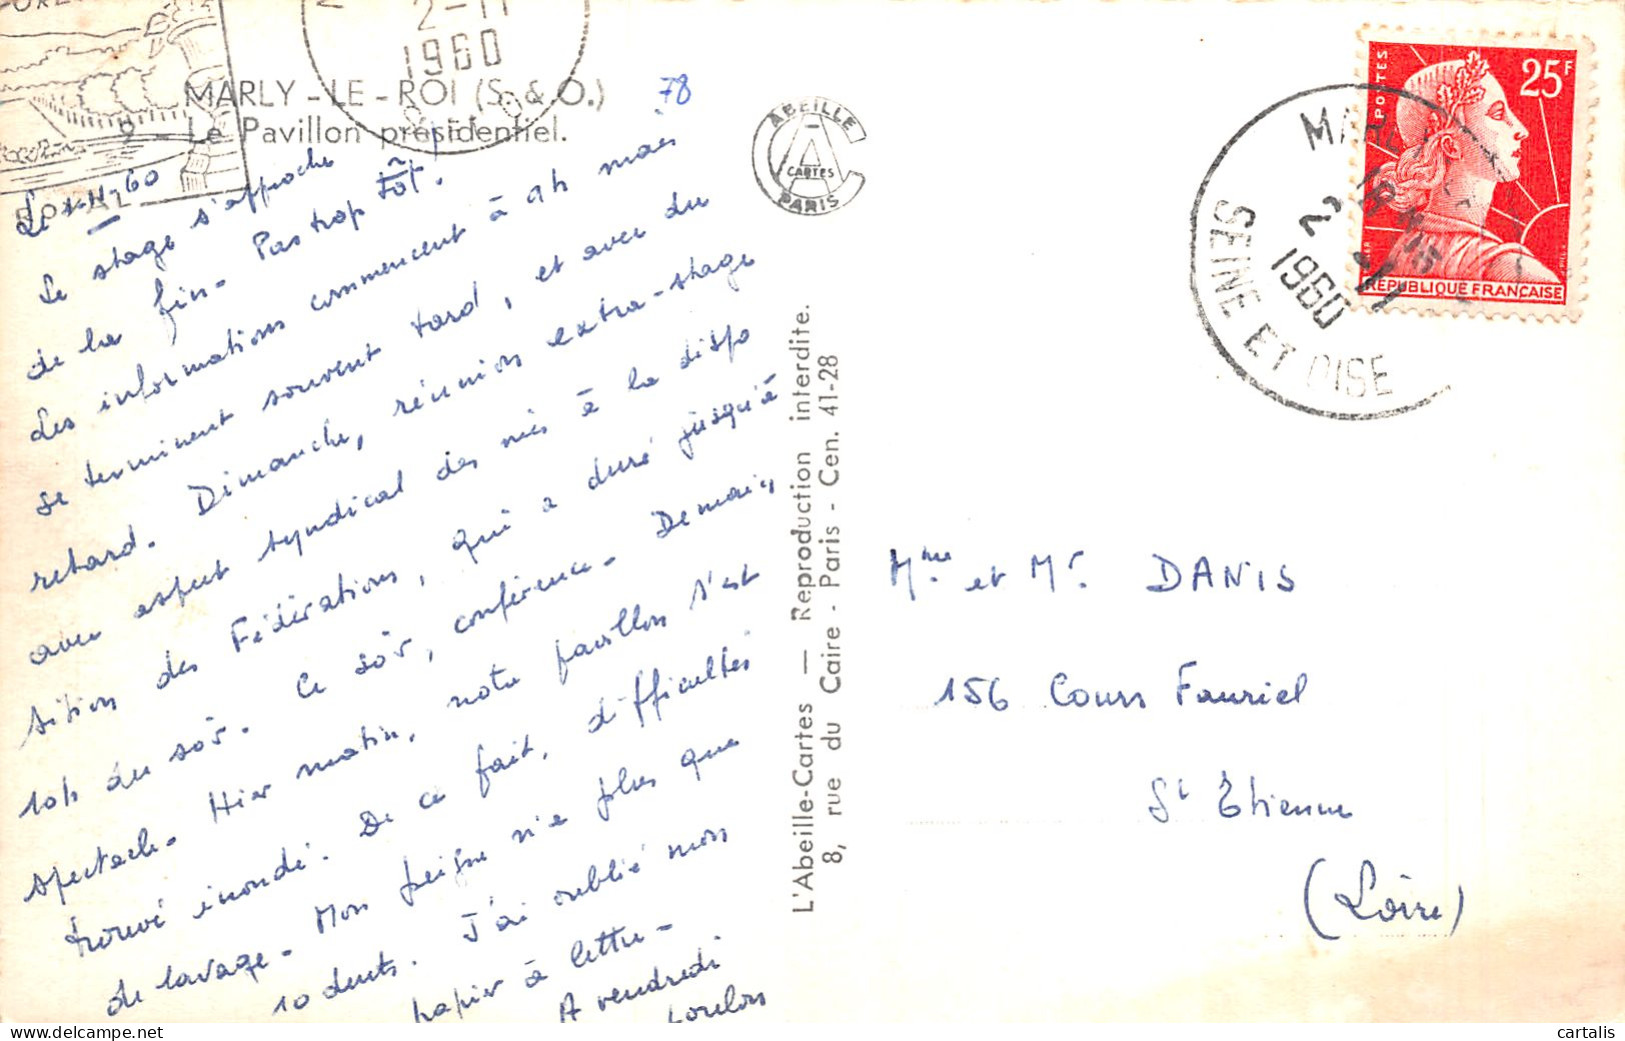 2-11
1960
MARLY-LE-ROI (S.&O.)
9 - Le Pavillon présidentiel.
78
Le 1-11-60
Le stage s'approche
de la fin. Pas trop tôt.
Les informations commencent à 9h mais
se terminent souvent tard, et avec du
retard. Dimanche, réunion extra-stage
avec aspect syndical des mis à la dispo
sition des Fédérations, qui a duré jusqu'à
10h du soir. Ce soir, conférence. Demain,
spectacle. Hier matin, notre pavillon s'est
trouvé inondé. De ce fait, difficultés
de lavage. Mon peigne n'a plus que
10 dents. J'ai oublié mon
papier à lettre.
A vendredi
Loulou
ABEILLE
CARTES
PARIS
L'Abeille-Cartes — Reproduction interdite.
8, rue du Caire - Paris - Cen. 41-28
POSTES
25F
RÉPUBLIQUE FRANÇAISE
2-11
1960
SEINE ET OISE
Mme et Mr DANIS
156 Cours Fauriel
St Etienne
(Loire)
cartalis
www.delcampe.net